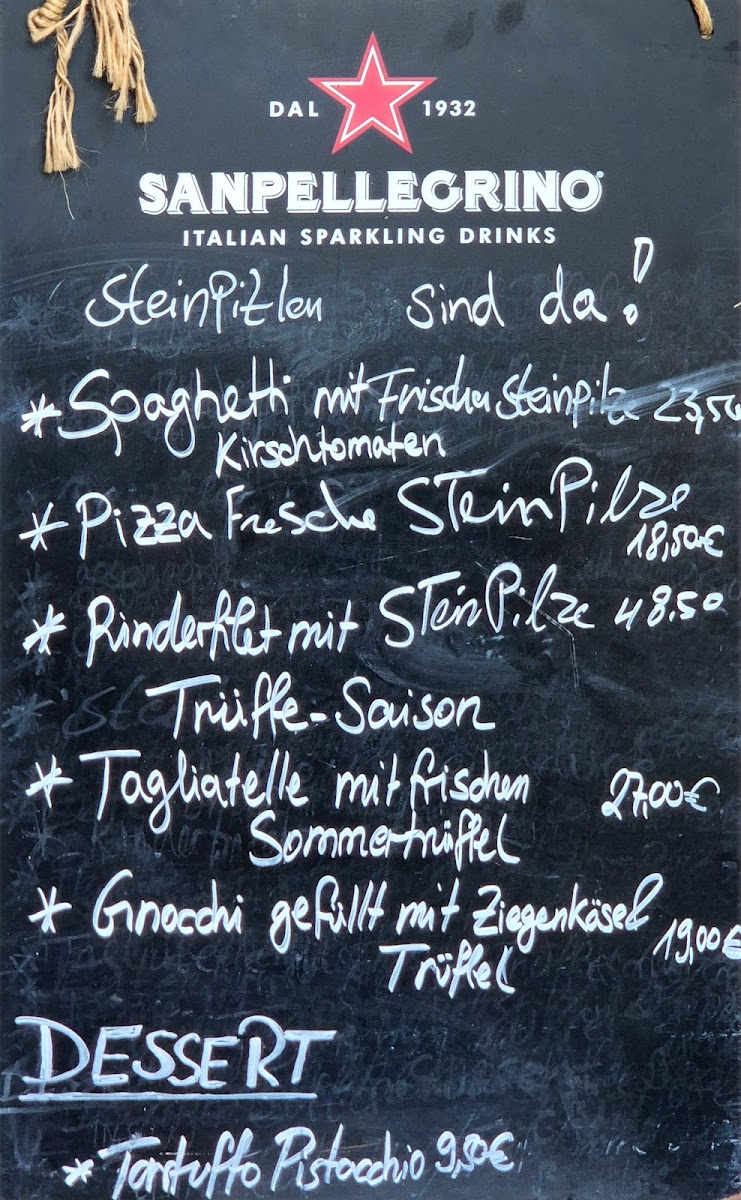 DAL 1932
SANPELLEGRINO
ITALIAN SPARKLING DRINKS
SteinPitlen sind da!
* Spaghetti mit Frischen Steinpilze 23,50
Kirschtomaten
* Pizza Fresche STeinPilze
18,50€
* Rinderfilet mit STeinPilze 48.50
Trüffle-Saison
* Tagliatelle mit frischen 27,00€
Sommertrüffel
* Gnocchi gefüllt mit Ziegenkäse &
Trüffel 19,00€
DESSERT
* Tartuffo Pistacchio 9,50€